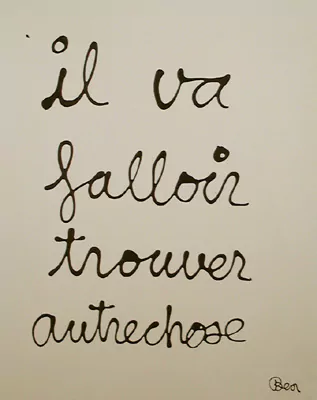 il va
falloir
trouver
autrechose
Ben